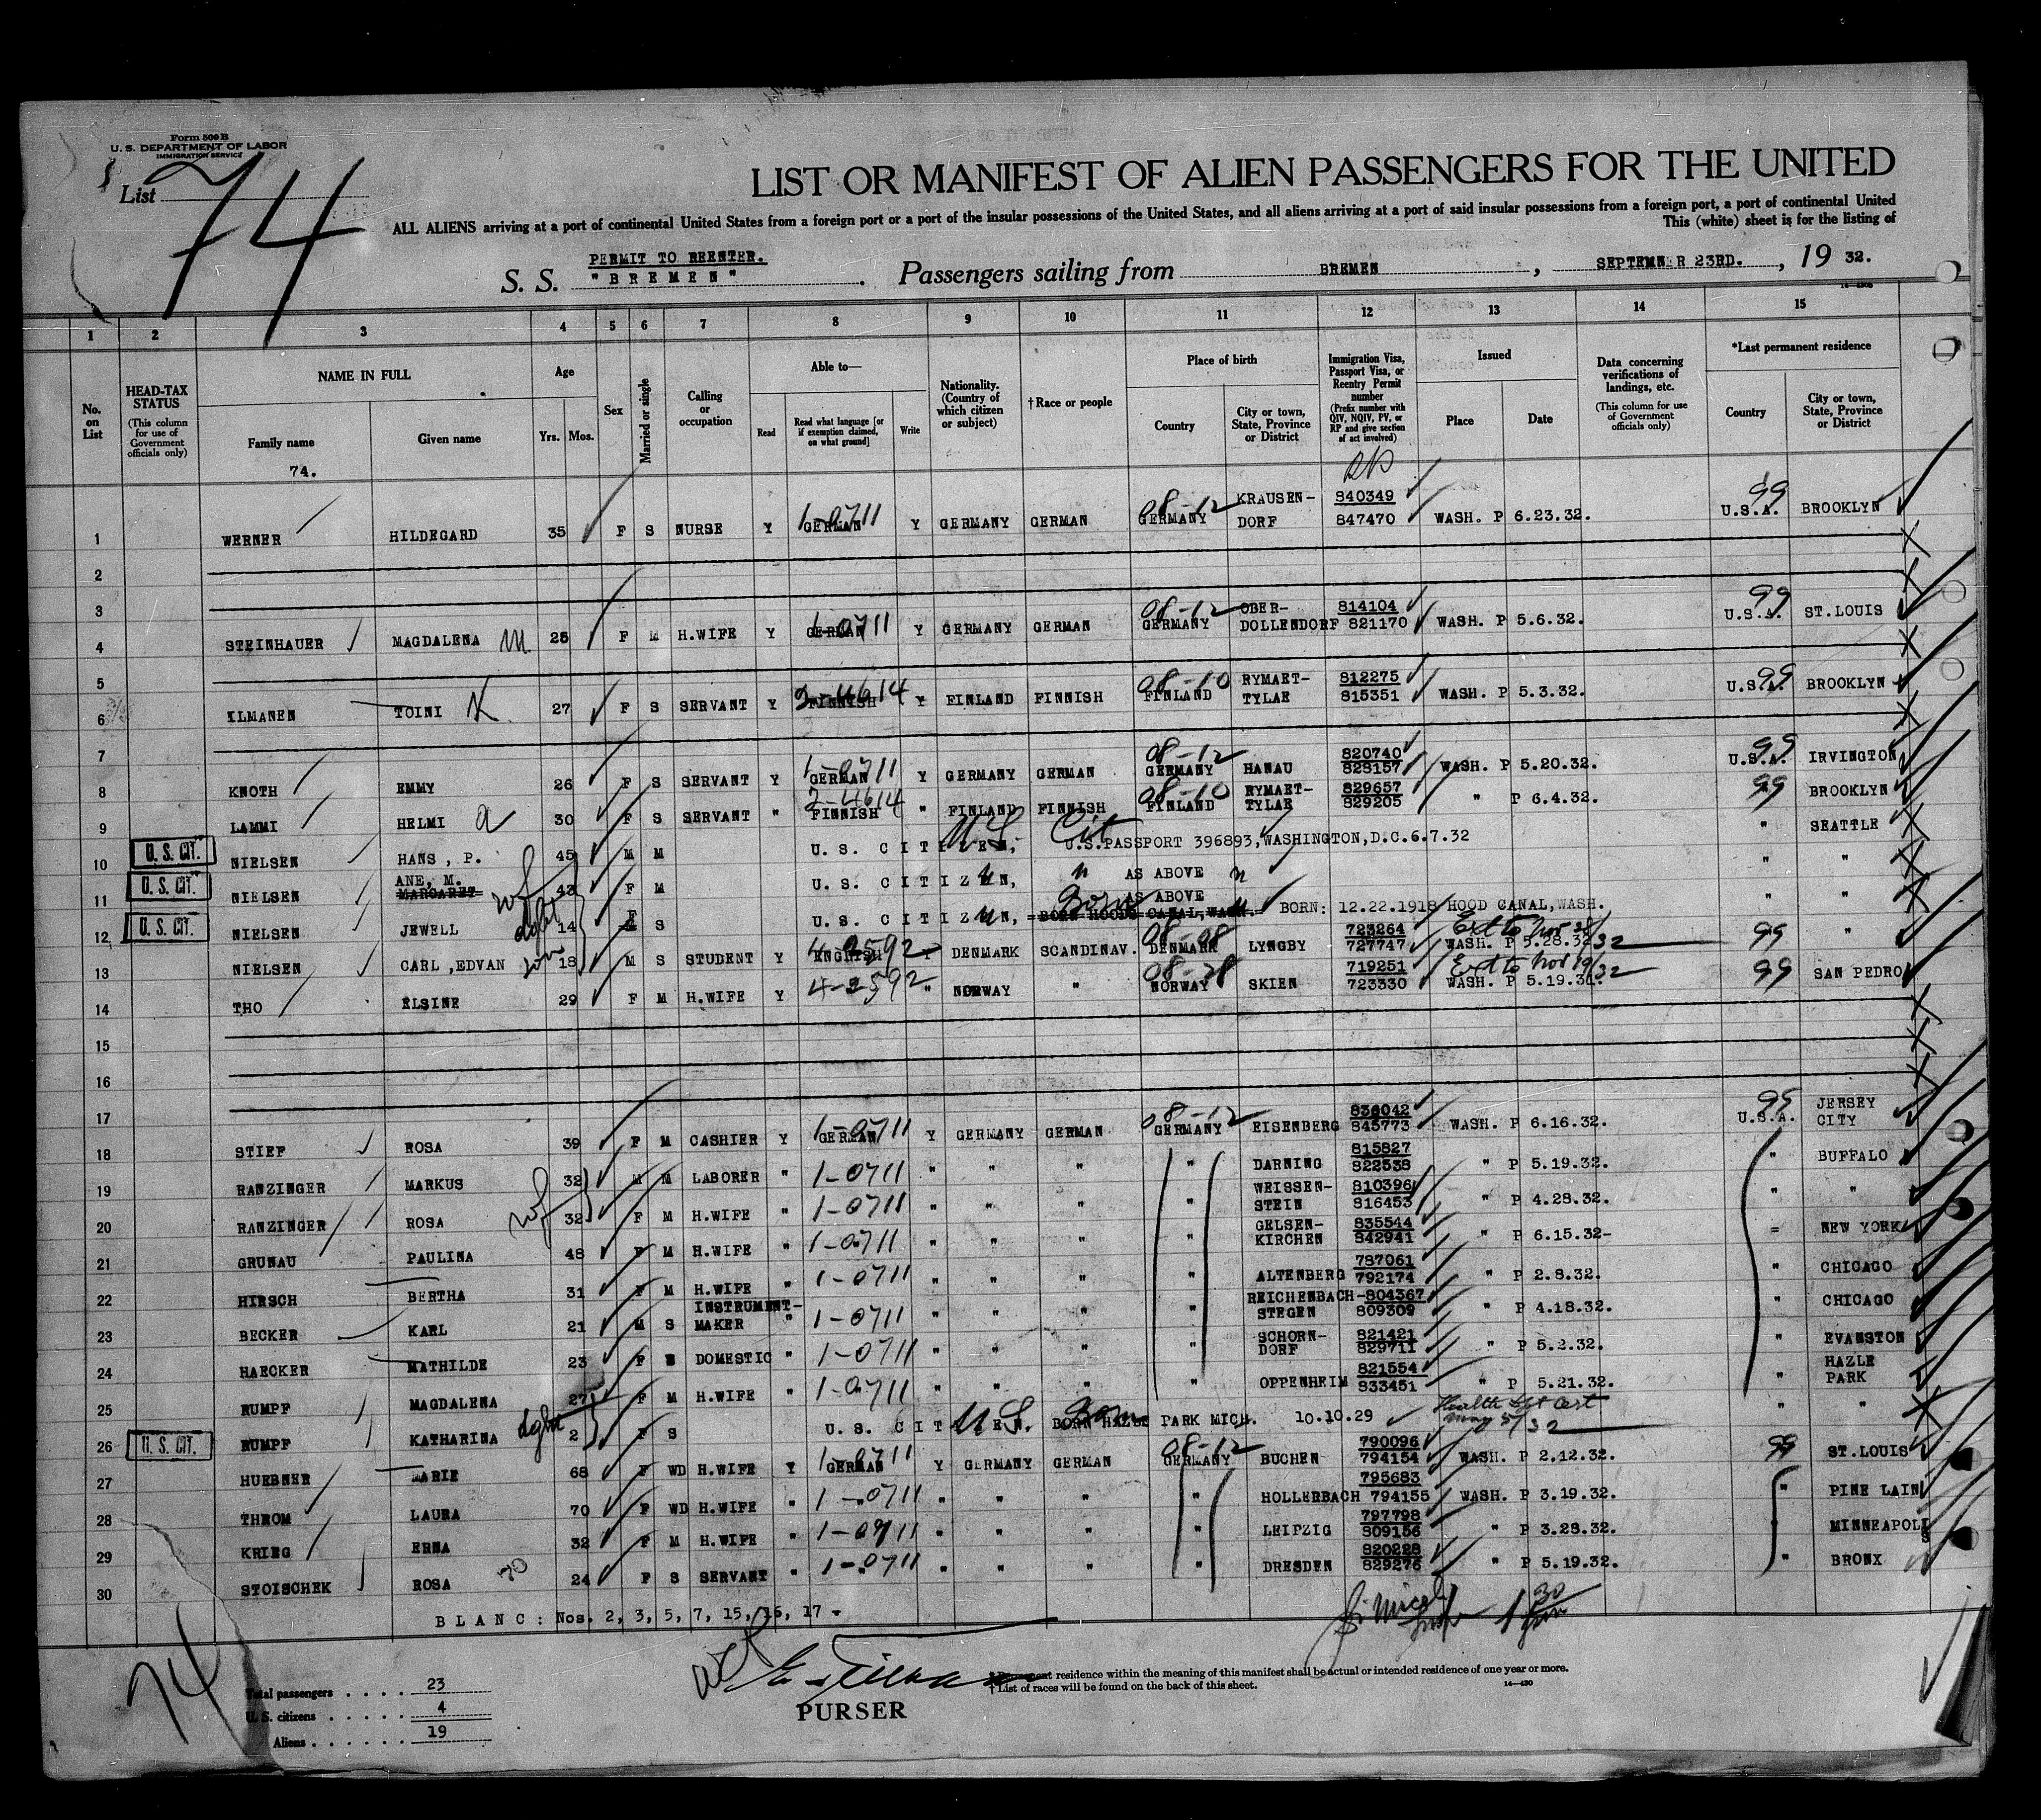 Form 500 B
U. S. DEPARTMENT OF LABOR
IMMIGRATION SERVICE
List 74
LIST OR MANIFEST OF ALIEN PASSENGERS FOR THE UNITED
ALL ALIENS arriving at a port of continental United States from a foreign port or a port of the insular possessions of the United States, and all aliens arriving at a port of said insular possessions from a foreign port, a port of continental United
This (white) sheet is for the listing of
PERMIT TO REENTER.
S. S. "BREMEN" . Passengers sailing from BREMEN , SEPTEMNER 23RD. , 19 32.
1 2 3 4 5 6 7 8 9 10 11 12 13 14 15
No. on List
HEAD-TAX STATUS (This column for use of Government officials only)
NAME IN FULL Family name Given name
Age Yrs. Mos.
Sex
Married or single
Calling or occupation
Able to— Read Read what language [or if exemption claimed, on what ground] Write
Nationality. (Country of which citizen or subject)
†Race or people
Place of birth Country City or town, State, Province or District
Immigration Visa, Passport Visa, or Reentry Permit number (Prefix number with QIV, NQIV, PV, or RP and give section of act involved)
Issued Place Date
Data concerning verifications of landings, etc. (This column for use of Government officials only)
*Last permanent residence Country City or town, State, Province or District
74.
RP
1 WERNER HILDEGARD 35 F S NURSE Y GERMAN 1-0711 Y GERMANY GERMAN 08-12 GERMANY KRAUSEN-DORF 840349 847470 WASH. P 6.23.32. 99 U.S.A. BROOKLYN
2
3
4 STEINHAUER MAGDALENA M. 25 F M H.WIFE Y GERMAN 1-0711 Y GERMANY GERMAN 08-12 GERMANY OBER-DOLLENDORF 814104 821170 WASH. P 5.6.32. 99 U.S.A. ST.LOUIS
5
6 ILMANEN TOINI K. 27 F S SERVANT Y FINNISH 2-4614 Y FINLAND FINNISH 08-10 FINLAND RYMAET-TYLAE 812275 815351 WASH. P 5.3.32. 99 U.S.A. BROOKLYN
7
8 KNOTH EMMY 26 F S SERVANT Y GERMAN 1-0711 Y GERMANY GERMAN 08-12 GERMANY HANAU 820740 828157 WASH. P 5.20.32. 99 U.S.A. IRVINGTON
9 LAMMI HELMI a 30 F S SERVANT " FINNISH 2-4614 " FINLAND FINNISH 08-10 FINLAND RYMAET-TYLAE 829657 829205 " P 6.4.32. 99 BROOKLYN
10 U.S. CIT. NIELSEN HANS, P. 45 M M U.S. CITIZEN, U.S. Cit U.S.PASSPORT 396893,WASHINGTON,D.C.6.7.32 " SEATTLE
11 U.S. CIT. NIELSEN ANE, M. MARGARET wf 43 F M U.S. CITIZEN, " AS ABOVE " " "
12 U.S. CIT. NIELSEN JEWELL 14 F S U.S. CITIZEN, AS ABOVE BORN HOODS CANAL,WASH. Born BORN: 12.22.1918 HOOD CANAL,WASH. " "
13 NIELSEN CARL ,EDVAN son 18 M S STUDENT Y ENGLISH 4-2592 Y DENMARK SCANDINAV. 08-08 DENMARK LYNGBY 723264 727747 WASH. P 5.28.32 Ext to Nov 28/32 99 "
14 THO ELSINE 29 F M H.WIFE Y 4-2592 " NORWAY " 08-28 NORWAY SKIEN 719251 723330 WASH. P 5.19.31. Ext to Nov 19/32 99 SAN PEDRO
15
16
17
18 STIEF ROSA 39 F M CASHIER Y GERMAN 1-0711 Y GERMANY GERMAN 08-12 GERMANY EISENBERG 836042 845773 WASH. P 6.16.32. 99 U.S.A. JERSEY CITY
19 RANZINGER MARKUS 32 M M LABORER " 1-0711 " " " " DARNING 815827 822538 " P 5.19.32. " BUFFALO
20 RANZINGER ROSA wf 32 F M H.WIFE " 1-0711 " " " " WEISSEN-STEIN 810396 816453 " P 4.28.32. " "
21 GRUNAU PAULINA 48 F M H.WIFE " 1-0711 " " " " GELSEN-KIRCHEN 835544 842941 " P 6.15.32- = NEW YORK
22 HIRSCH BERTHA 31 F M H.WIFE " 1-0711 " " " " ALTENBERG 787061 792174 " P 2.8.32. " CHICAGO
23 BECKER KARL 21 M S INSTRUMENT-MAKER " 1-0711 " " " " REICHENBACH-STEGEN 804367 809309 " P 4.18.32. " CHICAGO
24 HAECKER MATHILDE 23 F S DOMESTIC " 1-0711 " " " " SCHORN-DORF 821421 829711 " P 5.2.32. " EVANSTON
25 RUMPF MAGDALENA 27 F M H.WIFE " 1-0711 " " " " OPPENHEIM 821554 833451 " P 5.21.32. HAZLE PARK
26 U.S. CIT. RUMPF KATHARINA 2 F S U.S. CITIZEN, U.S. BORN HAZLE PARK MICH. 10.10.29 " "
27 HUEBNER MARIE 68 F WD H.WIFE Y GERMAN 1-0711 Y GERMANY GERMAN 08-12 GERMANY BUCHEN 790096 794154 WASH. P 2.12.32. 99 ST.LOUIS
28 THROM LAURA 70 F WD H.WIFE " 1-0711 " " " " HOLLERBACH 795683 794155 WASH. P 3.19.32. " PINE LAIN
29 KRIEG ERNA 32 F M H.WIFE " 1-0711 " " " " LEIPZIG 797798 809156 " P 3.28.32. MINNEAPOLIS
30 STOISCHEK ROSA 24 F S SERVANT " 1-0711 " " " " DRESDEN 820228 829276 " P 5.19.32. " BRONX
BLANC: Nos. 2, 3, 5, 7, 15, 16, 17 -
74
Total passengers . . . . 23
U. S. citizens . . . . . 4
Aliens . . . . . . 19
PURSER
*Permanent residence within the meaning of this manifest shall be actual or intended residence of one year or more.
†List of races will be found on the back of this sheet.
14—430